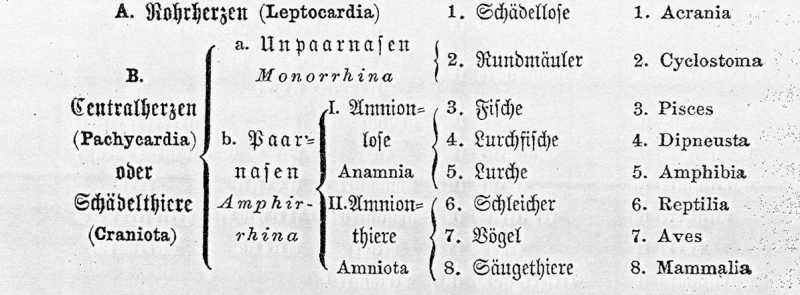 A. Rohrherzen (Leptocardia) 1. Schädellose 1. Acrania
a. Unpaarnasen
Monorrhina
2. Rundmäuler 2. Cyclostoma
B.
Centralherzen
(Pachycardia)
oder
Schädelthiere
(Craniota)
b. Paar-
nasen
Amphir-
rhina
I. Amnion-
lose
Anamnia
3. Fische 3. Pisces
4. Lurchfische 4. Dipneusta
5. Lurche 5. Amphibia
II. Amnion-
thiere
Amniota
6. Schleicher 6. Reptilia
7. Vögel 7. Aves
8. Säugethiere 8. Mammalia